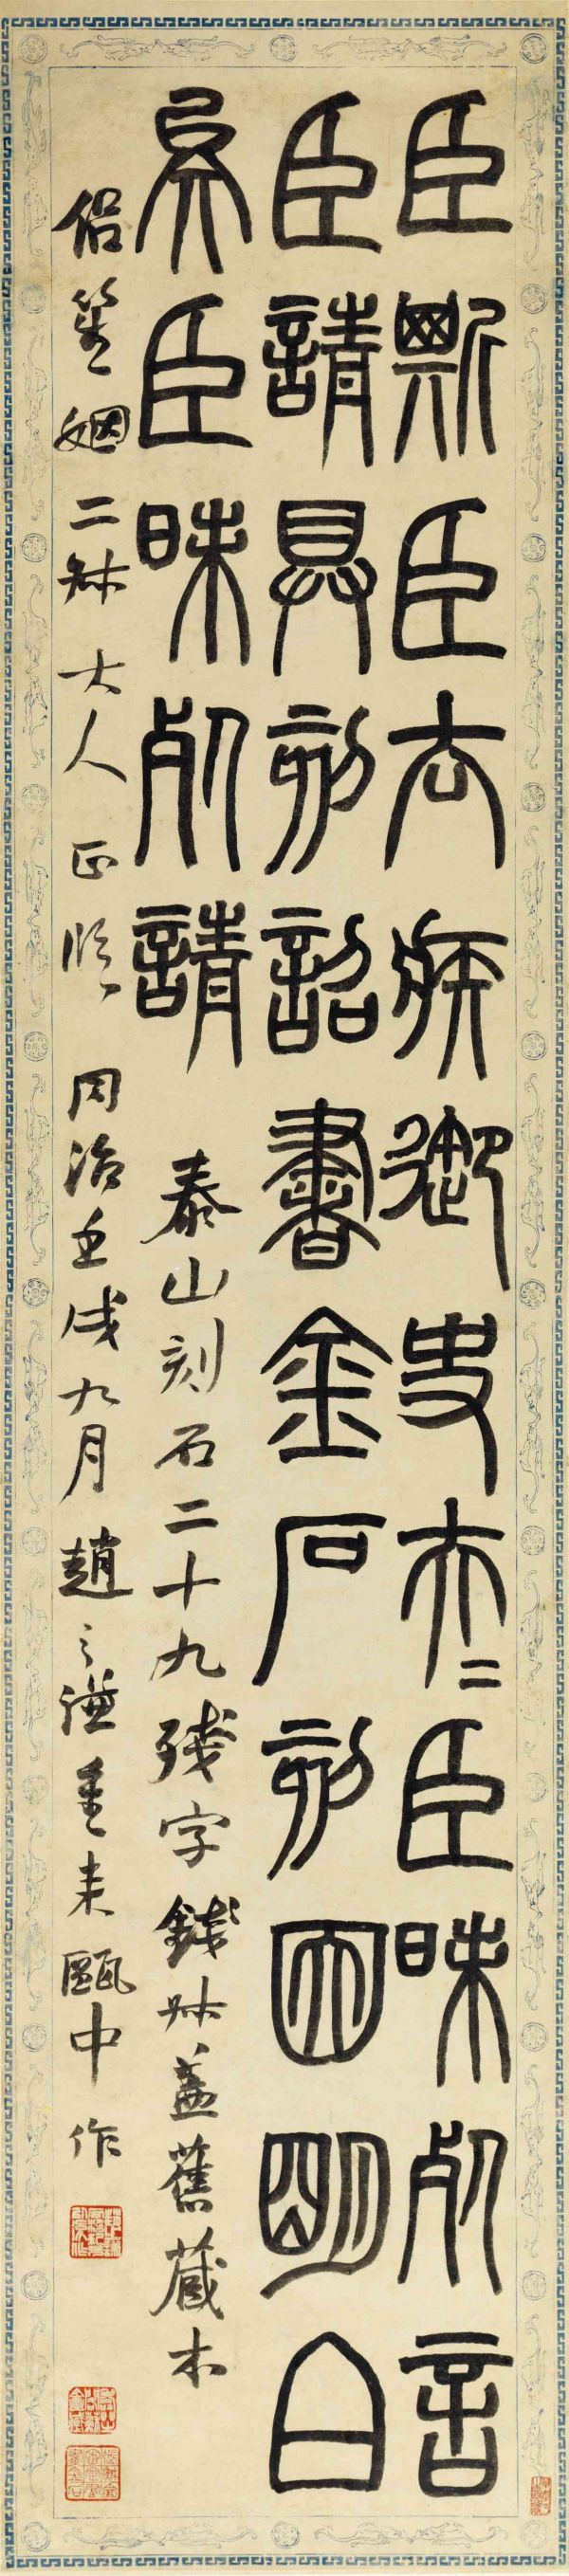 臣斯臣去疾御史夫=臣昧死言
臣請具刻詔書金石刻因明白
矣臣昧死請 泰山刻石二十九殘字錢叔蓋舊藏本
侶笙姻二叔大人正臨 同治壬戌九月趙之謙重來甌中作